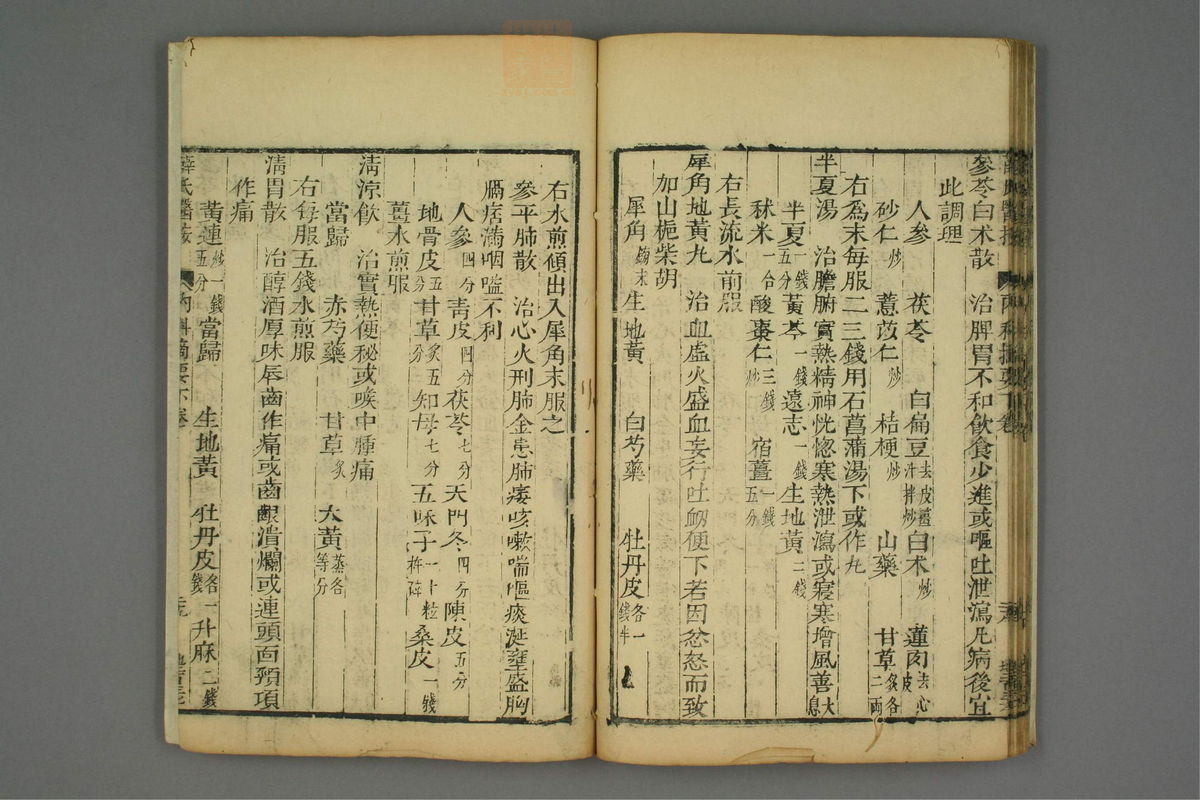 參苓白术散　治脾胃不和飲食少進或嘔吐泄瀉凡病後宜
此調理
人參　茯苓　白扁豆去皮薑汁拌炒　白术炒　蓮肉去心皮
砂仁炒　薏苡仁炒　桔梗炒　山藥　甘草炙各二兩
右爲末每服二三錢用石菖蒲湯下或作丸
半夏湯　治膽腑實熱精神恍惚寒熱泄瀉或寢寒憎風善大息
半夏一錢五分　黃芩一錢　遠志一錢　生地黃二錢
秫米一合　酸棗仁炒三錢　宿薑一錢五分
右長流水煎服
犀角地黃丸　治血虛火盛血妄行吐衂便下若因忿怒而致
加山梔柴胡
犀角鎊末　生地黃　白芍藥　牡丹皮各一錢半
右水煎傾出入犀角末服之
參平肺散　治心火刑肺金患肺痿咳嗽喘嘔痰涎壅盛胸
膈痞滿咽嗌不利
人參四分　靑皮四分　茯苓七分　天門冬四分　陳皮五分
地骨皮五分　甘草炙五分　知母七分　五味子十一粒杵碎　桑皮一錢
薑水煎服
淸涼飮　治實熱便秘或喉中腫痛
當歸　赤芍藥　甘草炙　大黃蒸各等分
右每服五錢水煎服
淸胃散　治醇酒厚味唇齒作痛或齒齦潰爛或連頭面頸項
作痛
黃連炒一錢五分　當歸　生地黃　牡丹皮各一錢　升麻二錢
薛氏醫案　內科摘要下卷